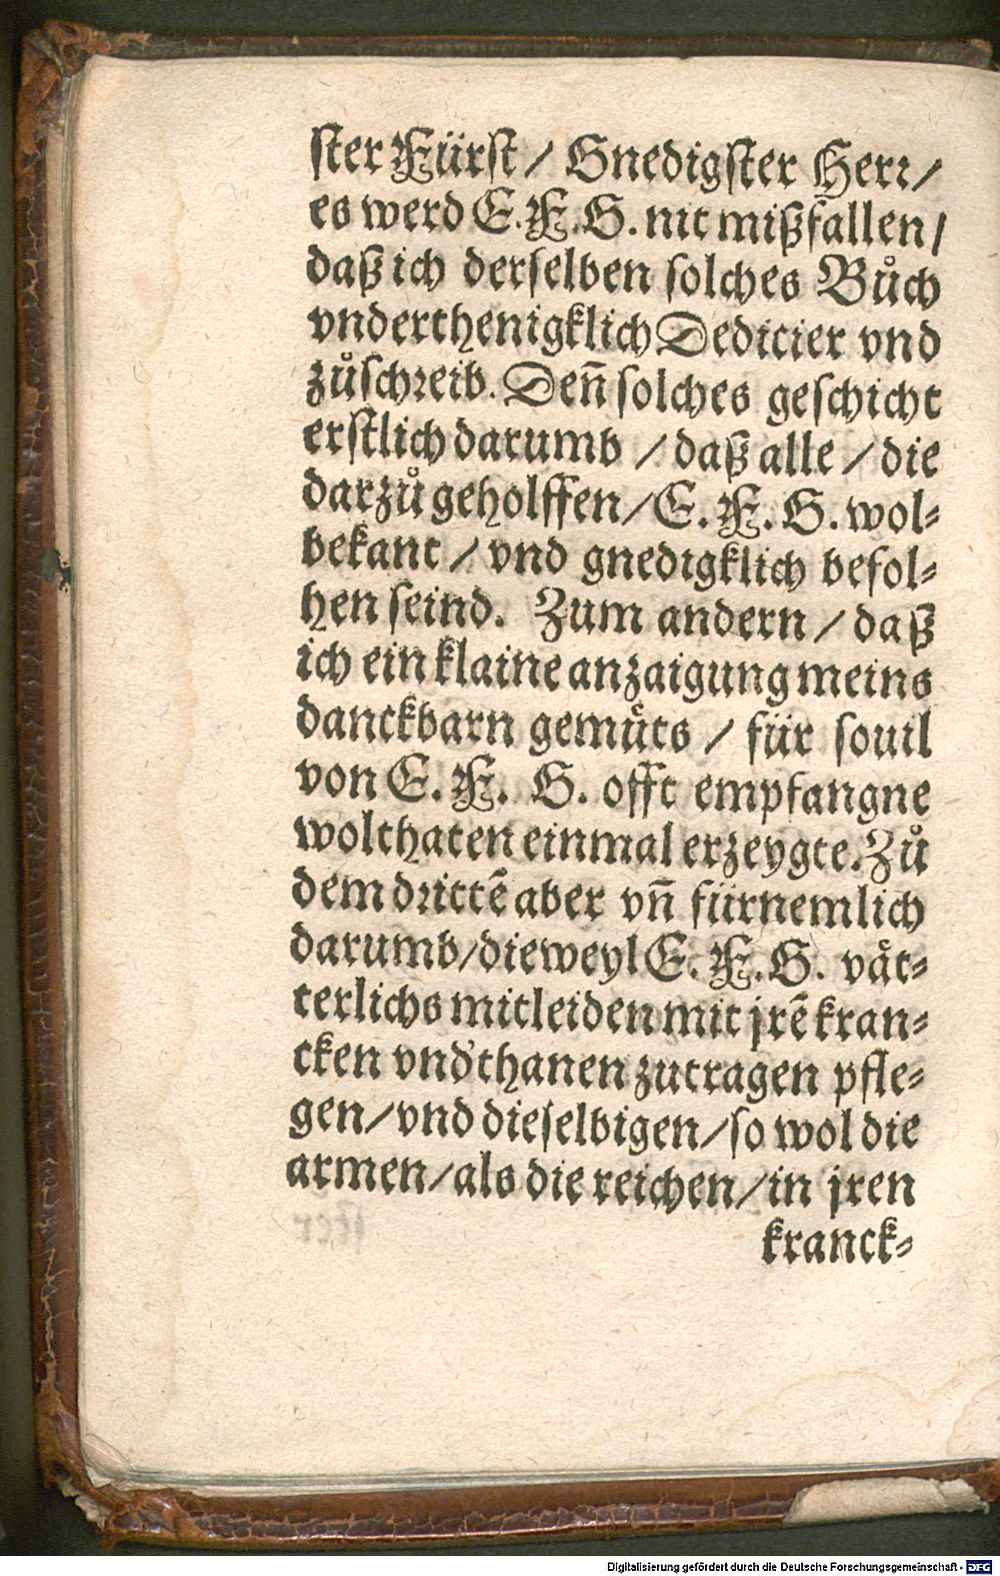 ster Fürst / Gnedigster Herr /
es werd E. F. G. nit mißfallen /
daß ich derselben solches Bůch
vnderthenigklich Dedicier vnd
zůschreib. Deñ solches geschicht
erstlich darumb / daß alle / die
darzů geholffen / E. F. G. wol-
bekant / vnd gnedigklich befol-
hen seind. Zum andern / daß
ich ein klaine anzaigung meins
danckbarn gemuͤts / für souil
von E. F. G. offt empfangne
wolthaten einmal erzeygte. Zů
dem drittẽ aber vñ fürnemlich
darumb / dieweyl E. F. G. vaͤt-
terlichs mitleiden mit jrẽ kran-
cken vnd'thanen zutragen pfle-
gen / vnd dieselbigen / so wol die
armen / als die reichen / in jren
kranck-
Digitalisierung gefördert durch die Deutsche Forschungsgemeinschaft - DFG